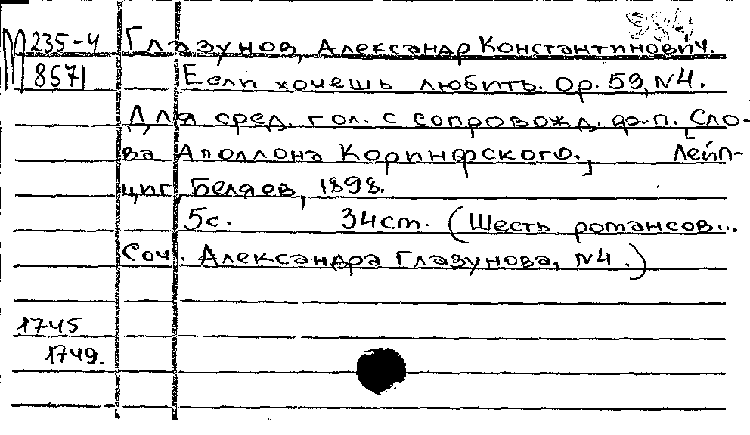 М 235-4 Глазунов, Александр Константинович.
8571 Если хочешь любить. Op. 59, N4.
Для сред. гол. с сопровожд. ф-п. [Сло-
ва Аполлона Коринфского.] Лейп-
циг, Беляев, 1898.
5с. 34 ст. (Шесть романсов...
Соч. Александра Глазунова, N4.)
1745
1749.